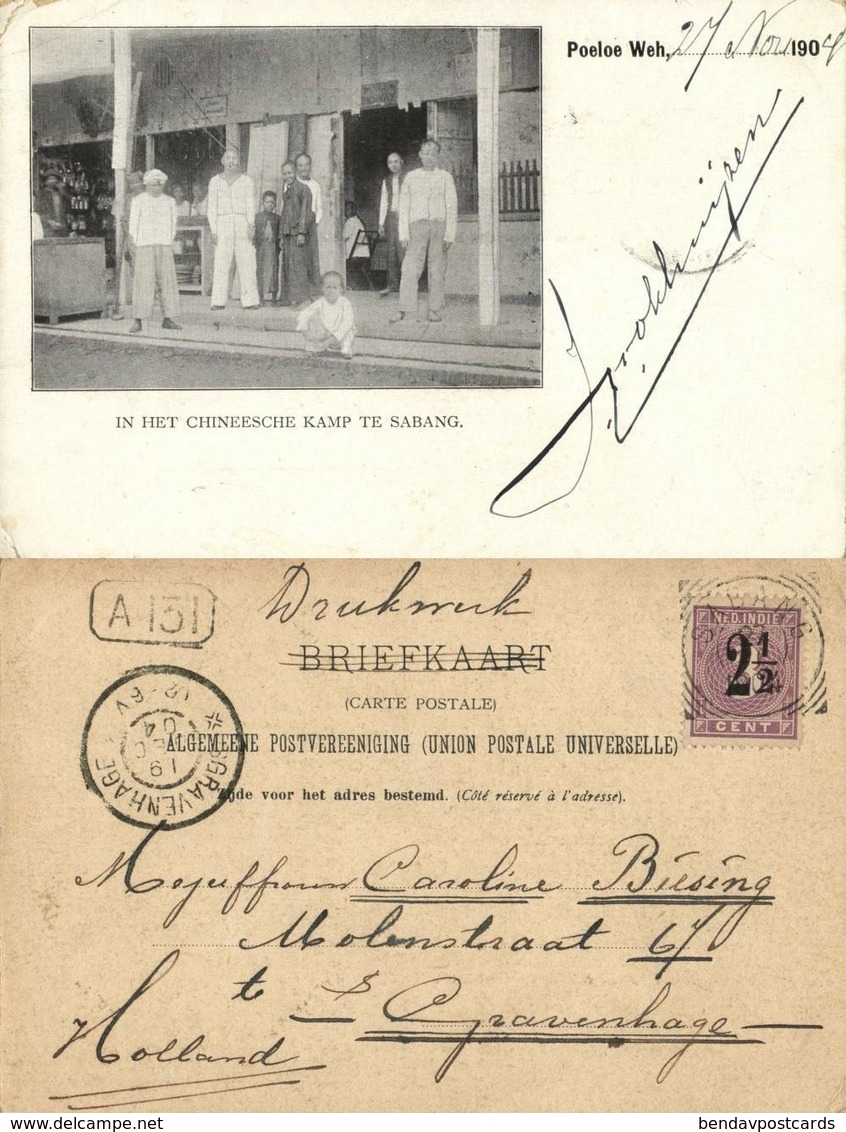 Poeloe Weh, 27 Nov. 1904
IN HET CHINEESCHE KAMP TE SABANG.
A 151
Drukwerk
BRIEFKAART
(CARTE POSTALE)
ALGEMEENE POSTVEREENIGING (UNION POSTALE UNIVERSELLE)
Zijde voor het adres bestemd. (Côté réservé à l'adresse).
NED. INDIE
2 1/2
CENT
SABANG
'SGRAVENHAGE
12-6V
19
04
Mejuffrouw Caroline Biesing
Molenstraat 67
te 's Gravenhage
Holland
www.delcampe.net
bendavpostcards